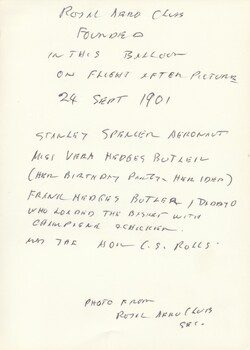 ROYAL AERO CLUB
FOUNDED
IN THIS BALLOON
ON FLIGHT AFTER PICTURE
24 SEPT 1901
STANLEY SPENCER AERONAUT
MISS VERA HEDGES BUTLER
(HER BIRTHDAY PARTY - HER IDEA)
FRANK HEDGES BUTLER, (DADDY)
WHO LOADED THE BASKET WITH
CHAMPAGNE & CHICKEN.
AND THE HON C.S. ROLLS.
PHOTO FROM
ROYAL AERO CLUB
SEC.